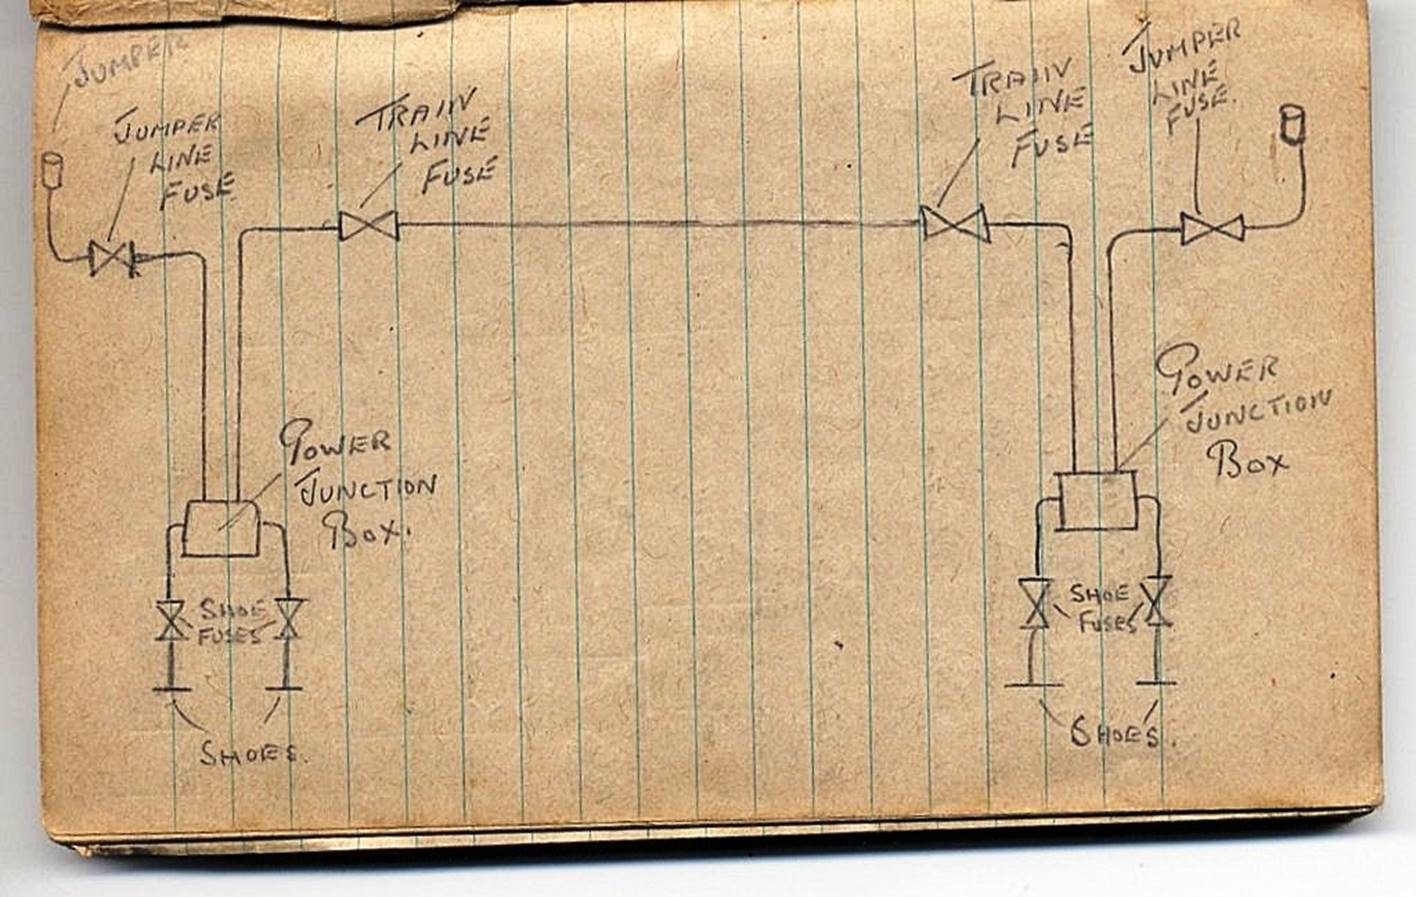 JUMPER
JUMPER
LINE
FUSE
TRAIN
LINE
FUSE
TRAIN
LINE
FUSE
JUMPER
LINE
FUSE.
POWER
JUNCTION
BOX.
POWER
JUNCTION
BOX
SHOE
FUSES
SHOE
FUSES
SHOES.
SHOES.